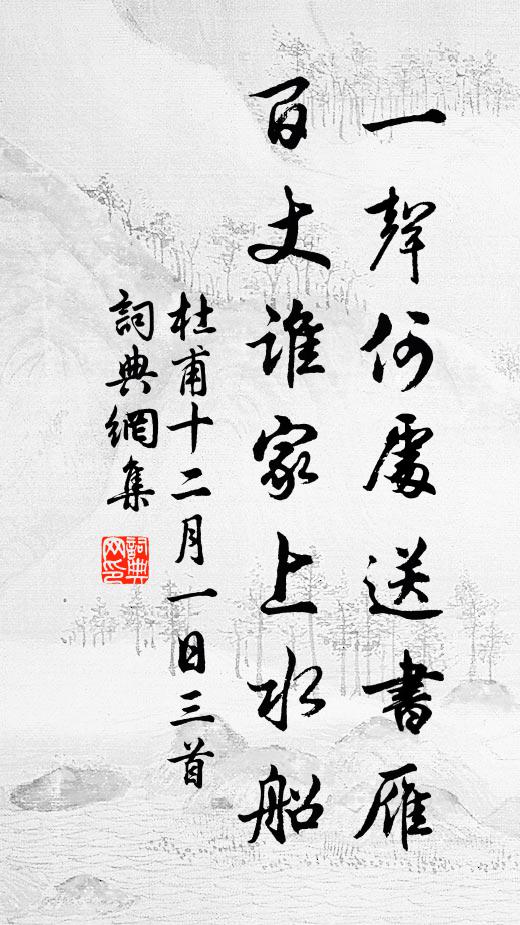 一聲何處送書雁
百丈誰家上水船
杜甫十二月一日三首
詞典網集
詞典网印